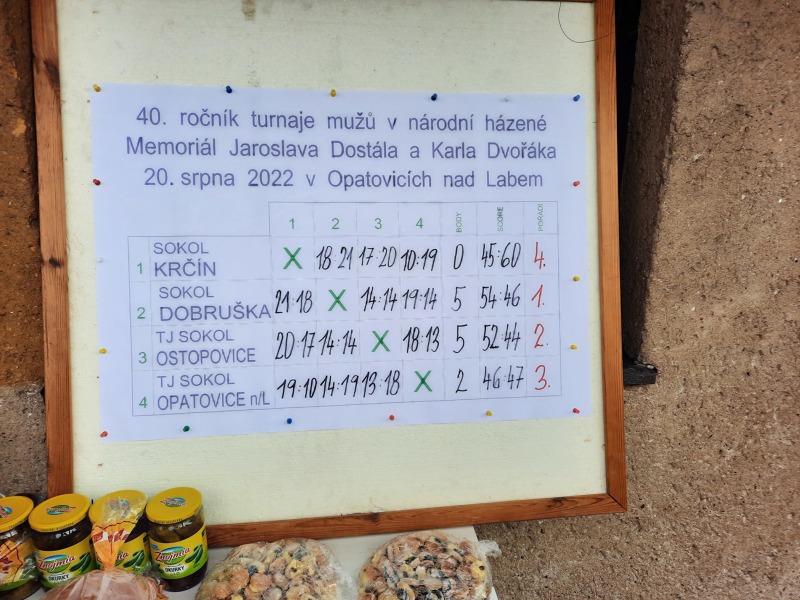 40. ročník turnaje mužů v národní házené
Memoriál Jaroslava Dostála a Karla Dvořáka
20. srpna 2022 v Opatovicích nad Labem
1 2 3 4 BODY SCORE POŘADÍ
SOKOL
1 KRČÍN X 18 21 17:20 10:19 0 45:60 4.
SOKOL
2 DOBRUŠKA 21:18 X 14:14 19:14 5 54:46 1.
TJ SOKOL
3 OSTOPOVICE 20:17 14:14 X 18:13 5 52:44 2.
TJ SOKOL
4 OPATOVICE n/L 19:10 14:19 13:18 X 2 46:47 3.
Znojmia
OKURKY
Znojmia
OKURKY